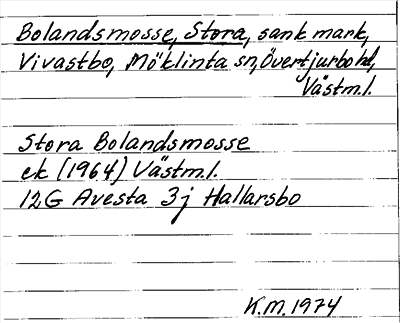 Bolandsmosse, Stora, sank mark,
Vivastbo, Möklinta sn, Övertjurbo hd,
Västml.
Stora Bolandsmosse
ek (1964) Västml.
12G Avesta 3j Hallarsbo
K.M. 1974